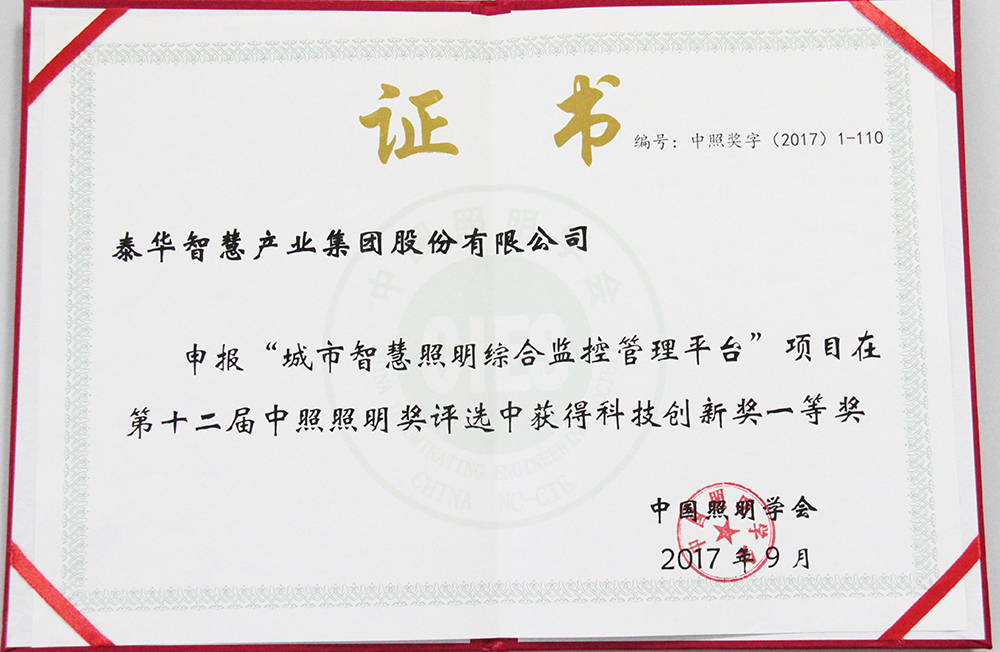 证 书
编号：中照奖字（2017）1-110
泰华智慧产业集团股份有限公司
申报“城市智慧照明综合监控管理平台”项目在
第十二届中照照明奖评选中获得科技创新奖一等奖
中国照明学会
2017 年 9 月